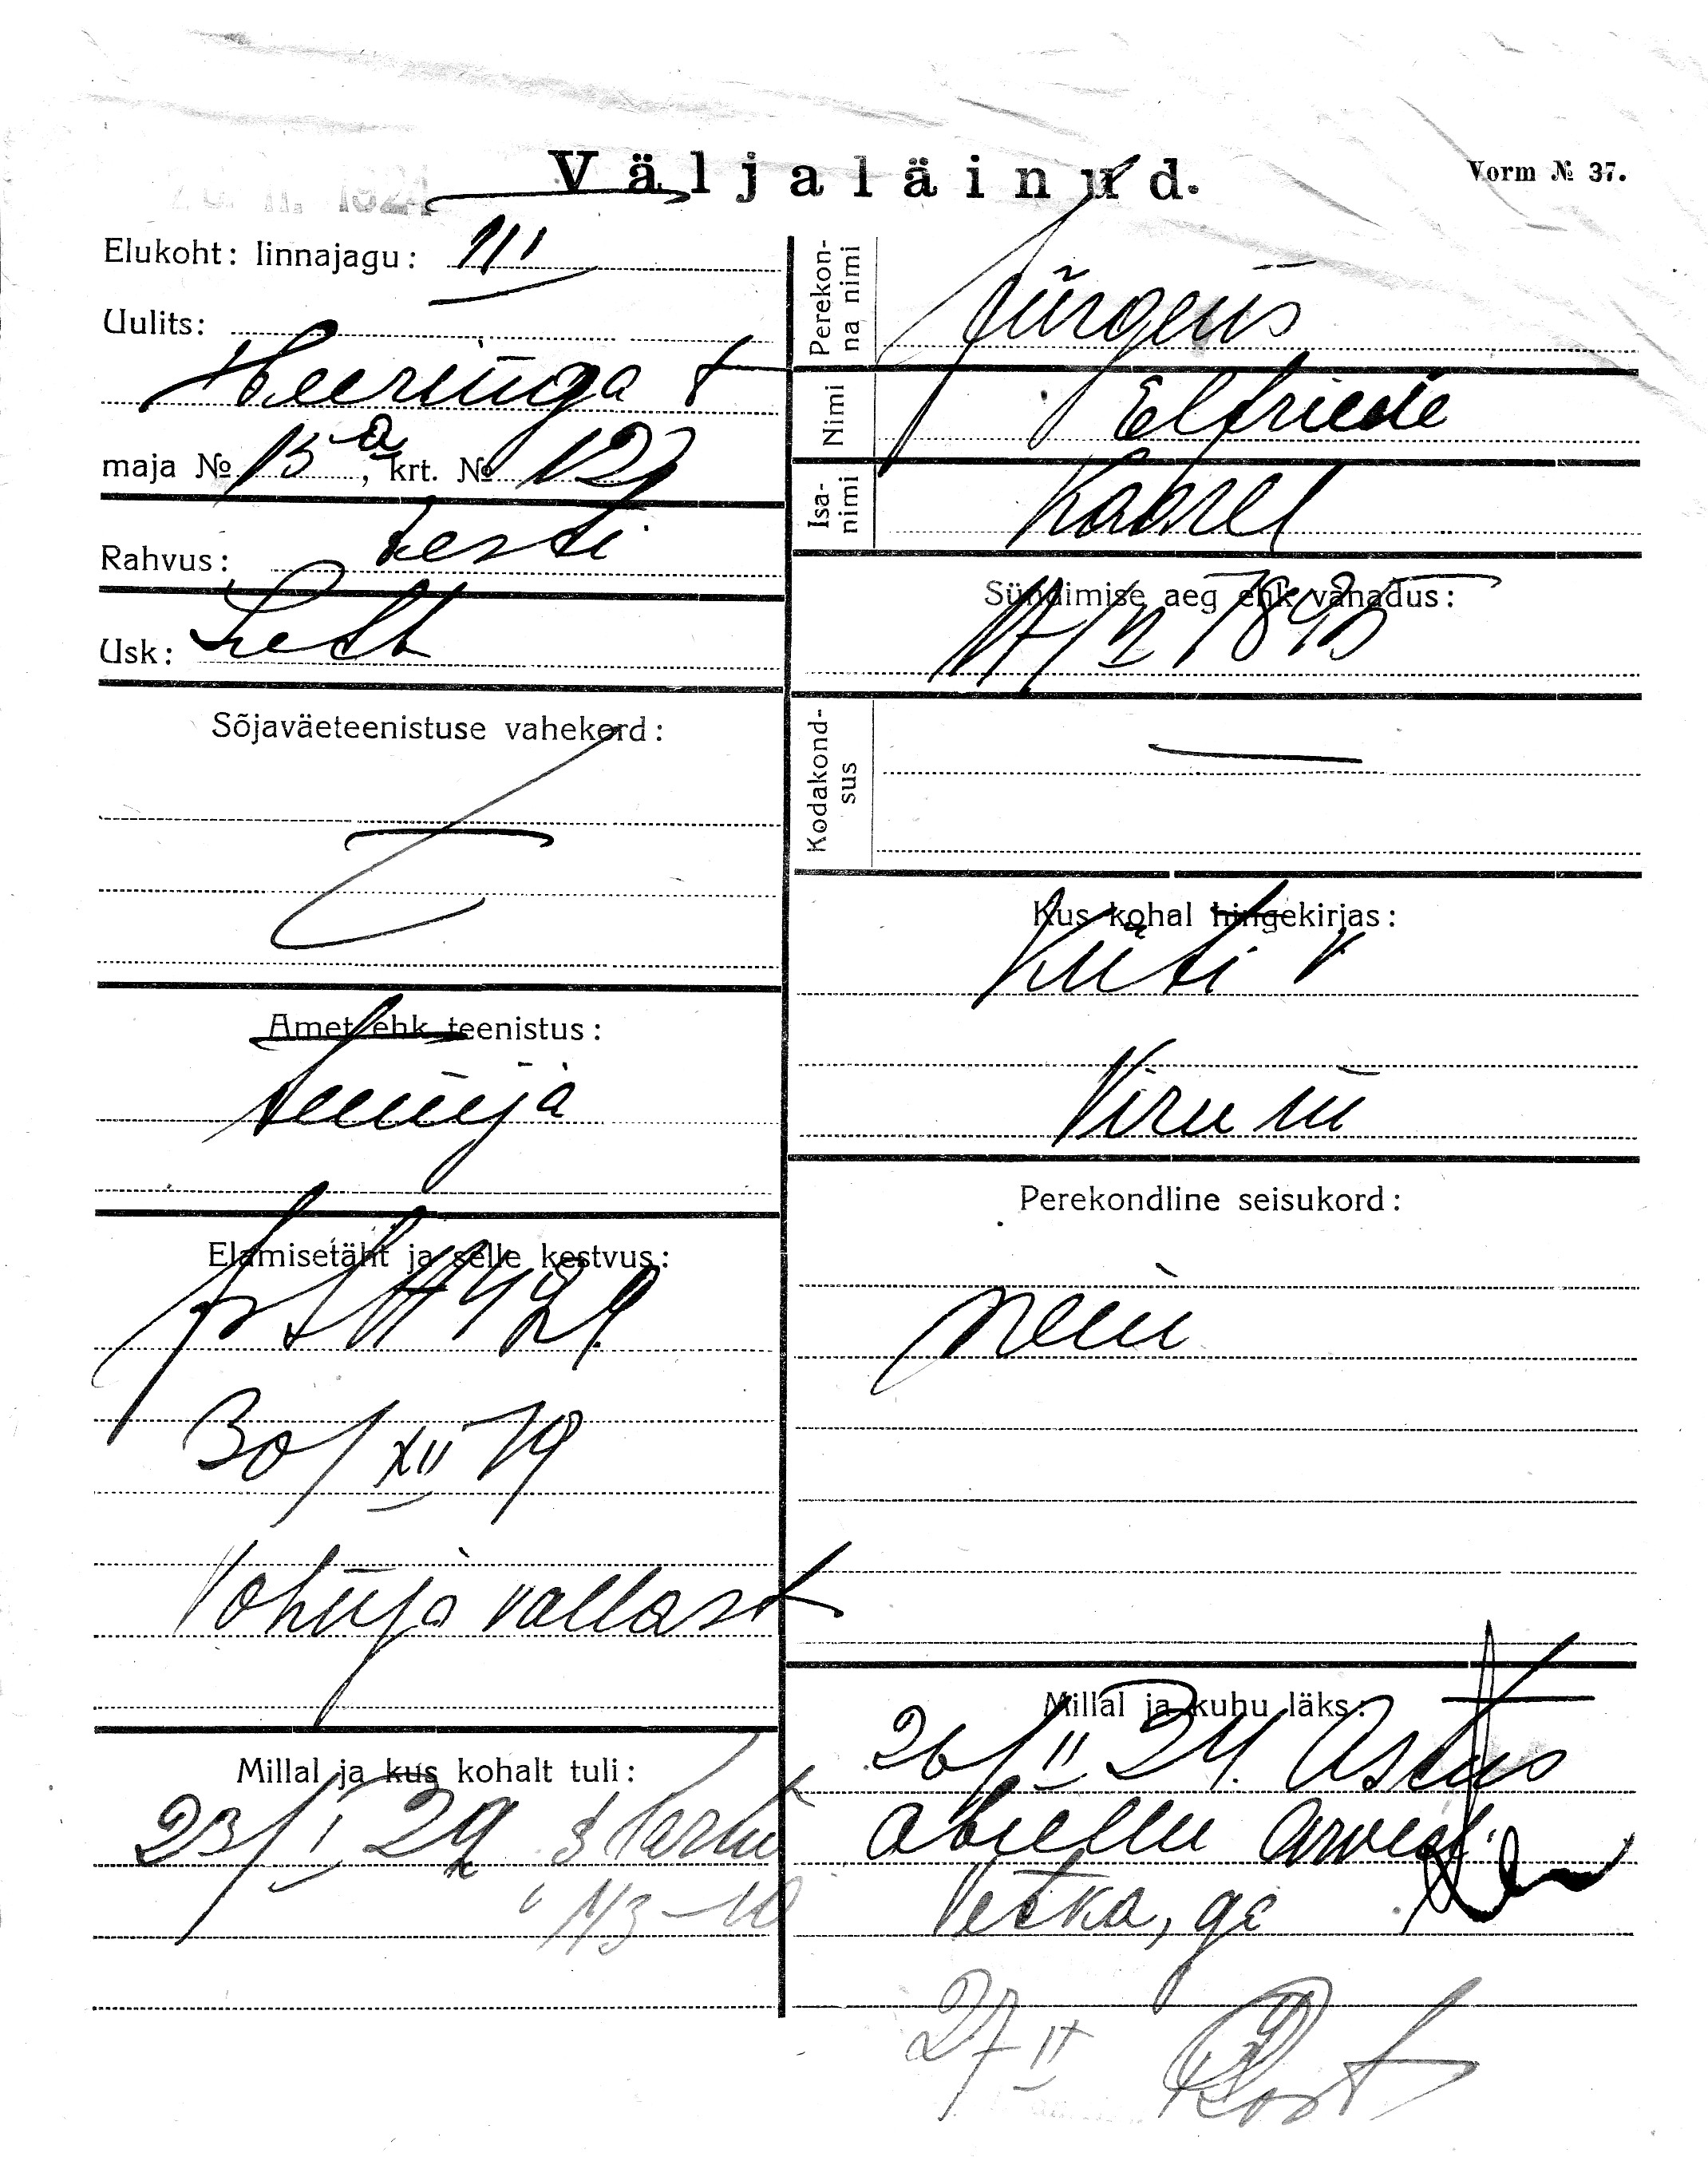 Väljaläinud.
Vorm № 37.
Elukoht: linnajagu: III
Uulits:
Heeringa t
maja № 15a, krt. № 122
Rahvus: Eesti
Usk: Luth
Sõjaväeteenistuse vahekord:
Amet ehk teenistus:
teenija
Elamisetäht ja selle kestvus:
30/XII 19
Vohnja vallast
Millal ja kus kohalt tuli:
23/I 24 Tartu
Perekonna nimi Jürgens
Nimi Elfriede
Isanimi Kaarel
Sündimise aeg ehk vanadus:
Kodakondsus
Kus kohal hingekirjas:
Küti v
Viru m
Perekondline seisukord:
neiu
Millal ja kuhu läks:
26/II 24. Astus
abiellu Arved
Vetka, ga
27 II